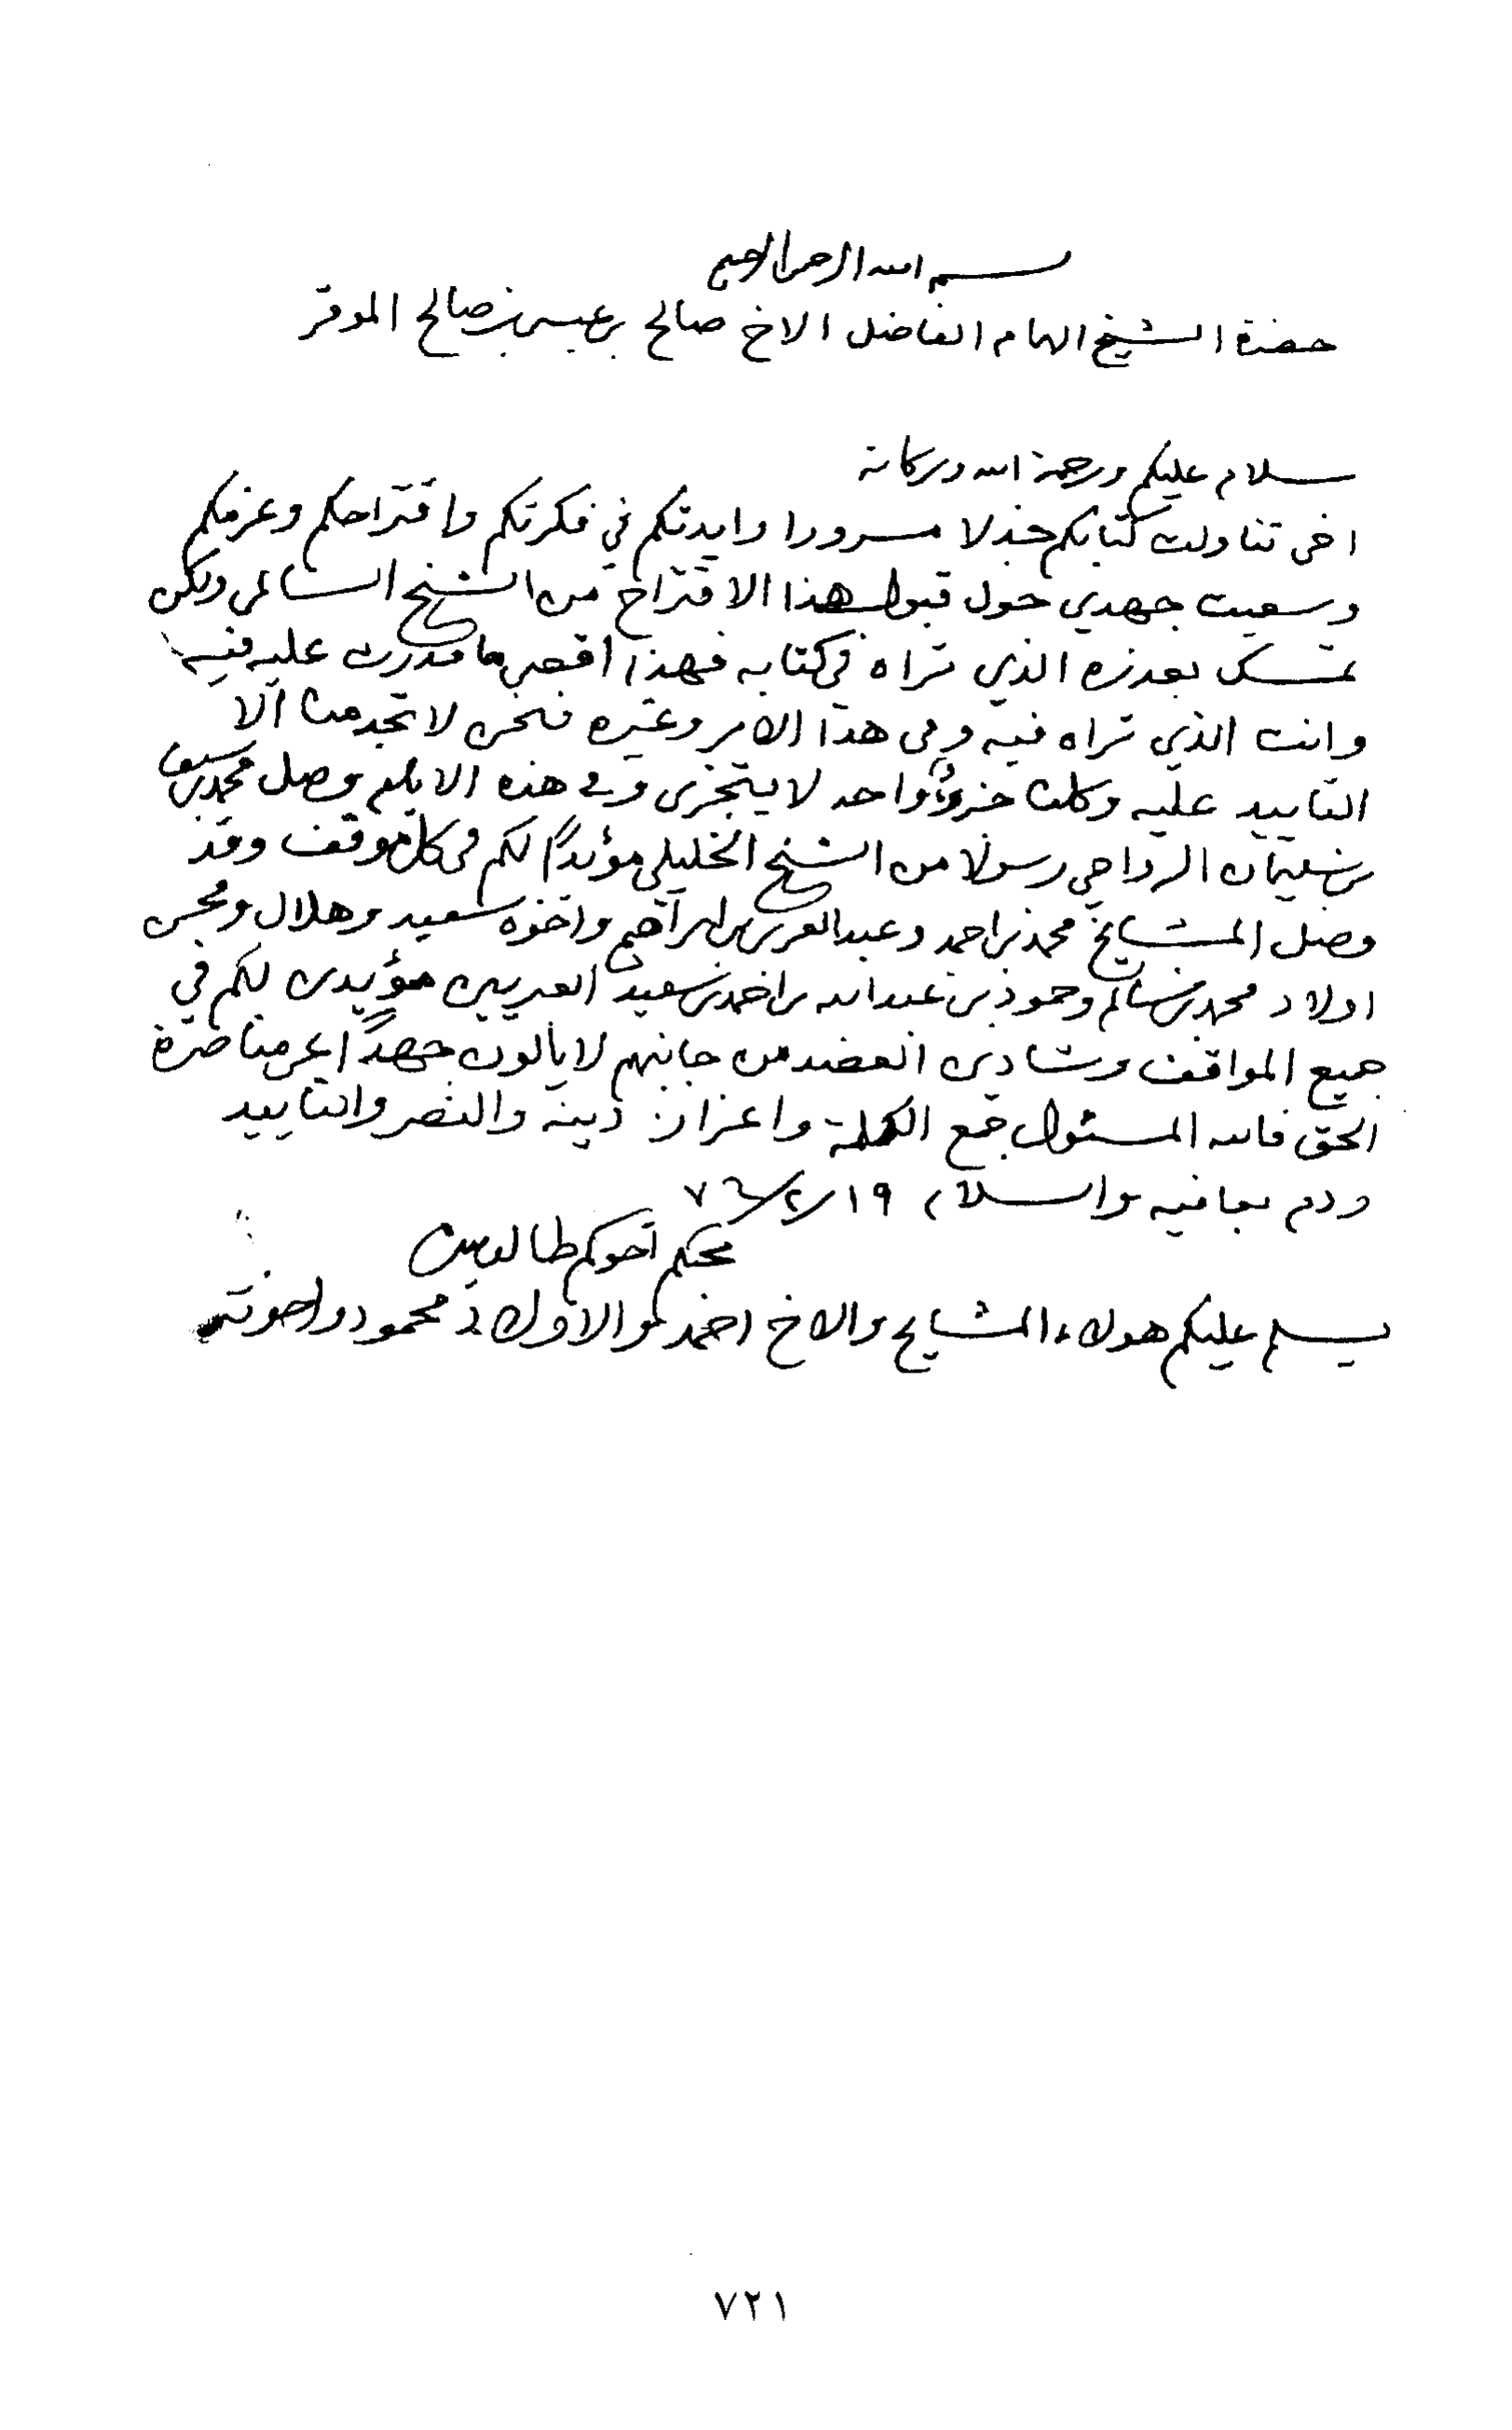 بسم الله الرحمن الرحيم
حضرة الشيخ الهمام الفاضل الاخ صالح بن عيسى بن صالح الموقر
سلام عليكم ورحمة الله وبركاته
اخي تناولت كتابكم جذلا مسرورا وايدتكم في فكرتكم واقتراحكم وعزمكم
وسعيت جهدي حول قبول هذا الاقتراح من الشيخ السالمي ولكن
تمسك بعذره الذي تراه في كتابه فهذا اقصى ما قدرت عليه فيه
وانت الذي تراه فيه وفي هذا الامر وغيره فنحن لا تجد منا الا
التاييد عليه وكلنا جزؤ واحد لا يتجزى وفي هذه الايام وصل محمد بن سيف
بن سليمان الرواحي رسولا من الشيخ الخليلي مؤيداً لكم في كل موقف وقد
وصل المشايخ محمد بن احمد وعبدالعزيز بن ابراهيم واخوه سعيد وهلال ومحسن
اولاد محمد بن سالم وحمود بن عبدالله بن احمد بن سعيد العبريين مؤيدين لكم في
جميع المواقف وشادين العضد من جانبهم لا يألون جهداً عن مناصرة
الحق فالله المسئول جمع الكلمة واعزاز دينه والنصر والتاييد
ودم بعافيه والسلام ١٩/٢/٧٦
محبكم اخوكم طالب بن
يسلم عليكم هولاء المشايخ والاخ احمد والاولاد محمود واخوته
٧٢١